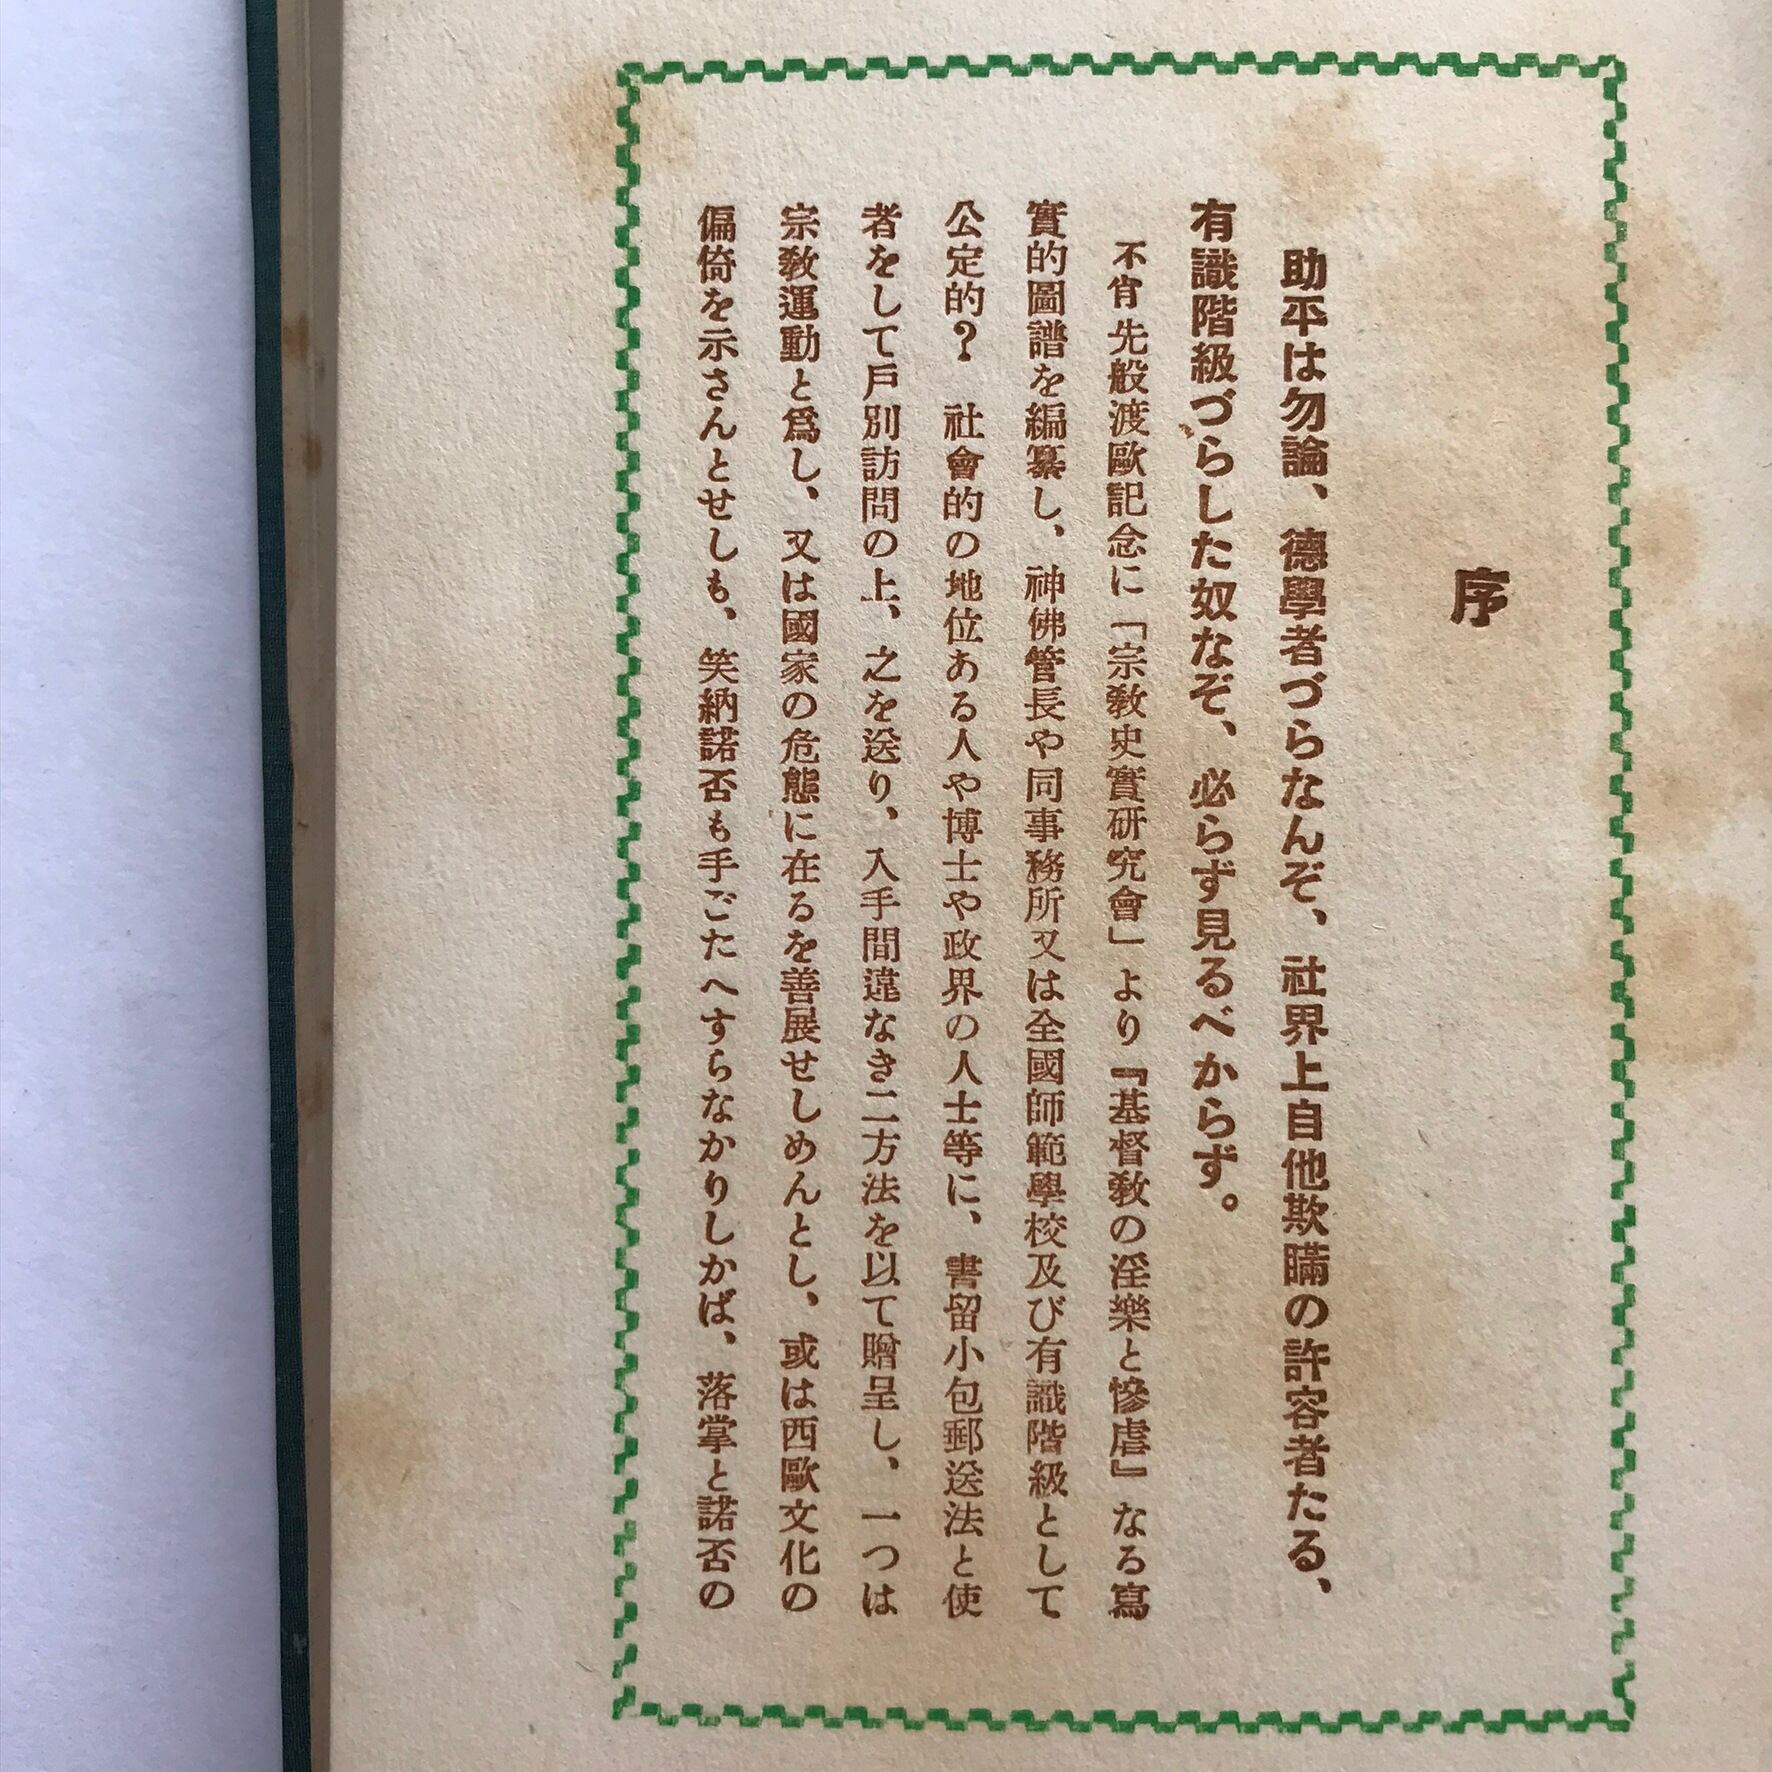 序
助平は勿論、德學者づらなんぞ、社界上自他欺瞞の許容者たる、
有識階級づらした奴なぞ、必らず見るべからず。
不肖先般渡歐記念に「宗敎史實硏究會」より『基督敎の淫樂と慘虐』なる寫
實的圖譜を編纂し、神佛管長や同事務所又は全國師範學校及び有識階級として
公定的？　社會的の地位ある人や博士や政界の人士等に、書留小包郵送法と使
者をして戶別訪問の上、之を送り、入手間違なき二方法を以て贈呈し、一つは
宗敎運動と爲し、又は國家の危態に在るを善展せしめんとし、或は西歐文化の
偏倚を示さんとせしも、笑納諾否も手ごたへすらなかりしかば、落掌と諾否の